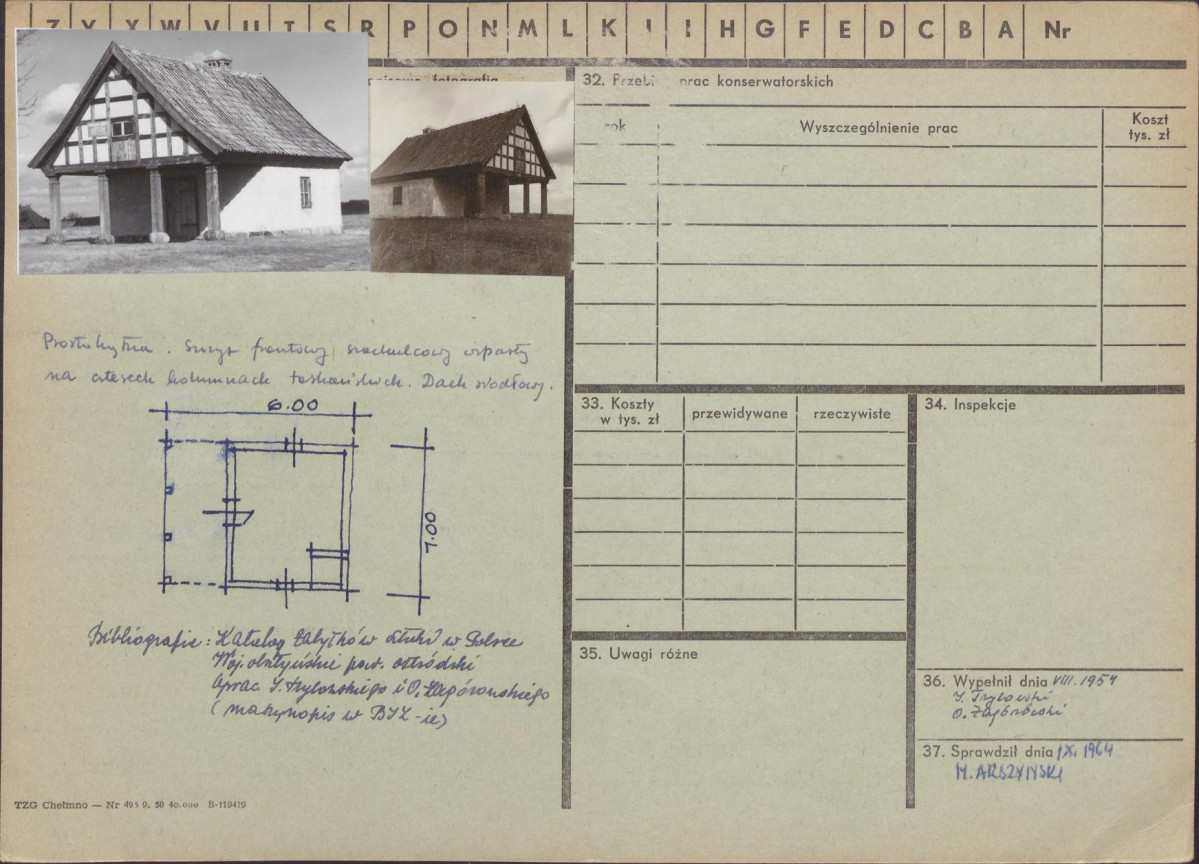 Z Y X W V U T S R P O N M L K J I H G F E D C B A Nr
fotografia
32. Przebi prac konserwatorskich
rok
Wyszczególnienie prac
Koszt
tys. zł
Prostokątna. Szczyt frontowy, szachulcowy wsparty
na czterech kolumnach toskańskich. Dach siodłowy.
6.00
7.00
Bibliografie: Katalog zabytków sztuki w Polsce
Woj. olsztyńskie pow. ostródzki
oprac
(maszynopis w
33. Koszty
w tys. zł
przewidywane
rzeczywiste
34. Inspekcje
35. Uwagi różne
36. Wypełnił dnia VIII.1957
37. Sprawdził dnia IX. 1964
M. ARSZYŃSKI
TZG Chełmno — Nr 495 9. 50 40.000 B-119479